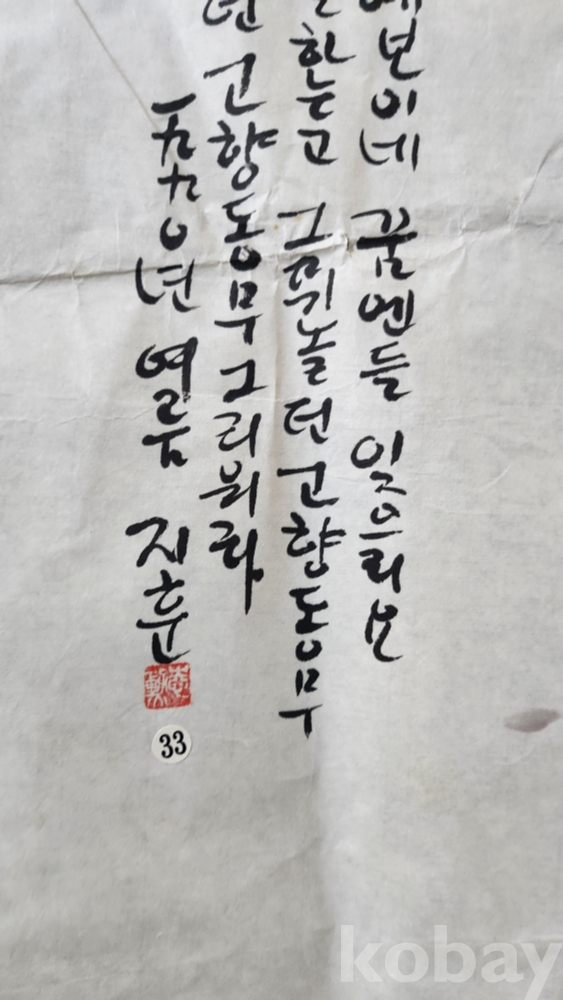 보이네 꿈엔들 잊으리요
하는고 그 뛰놀던 고향동무
던 고향동무 그리워라
一九九０년 여름 지훈
33
kobay